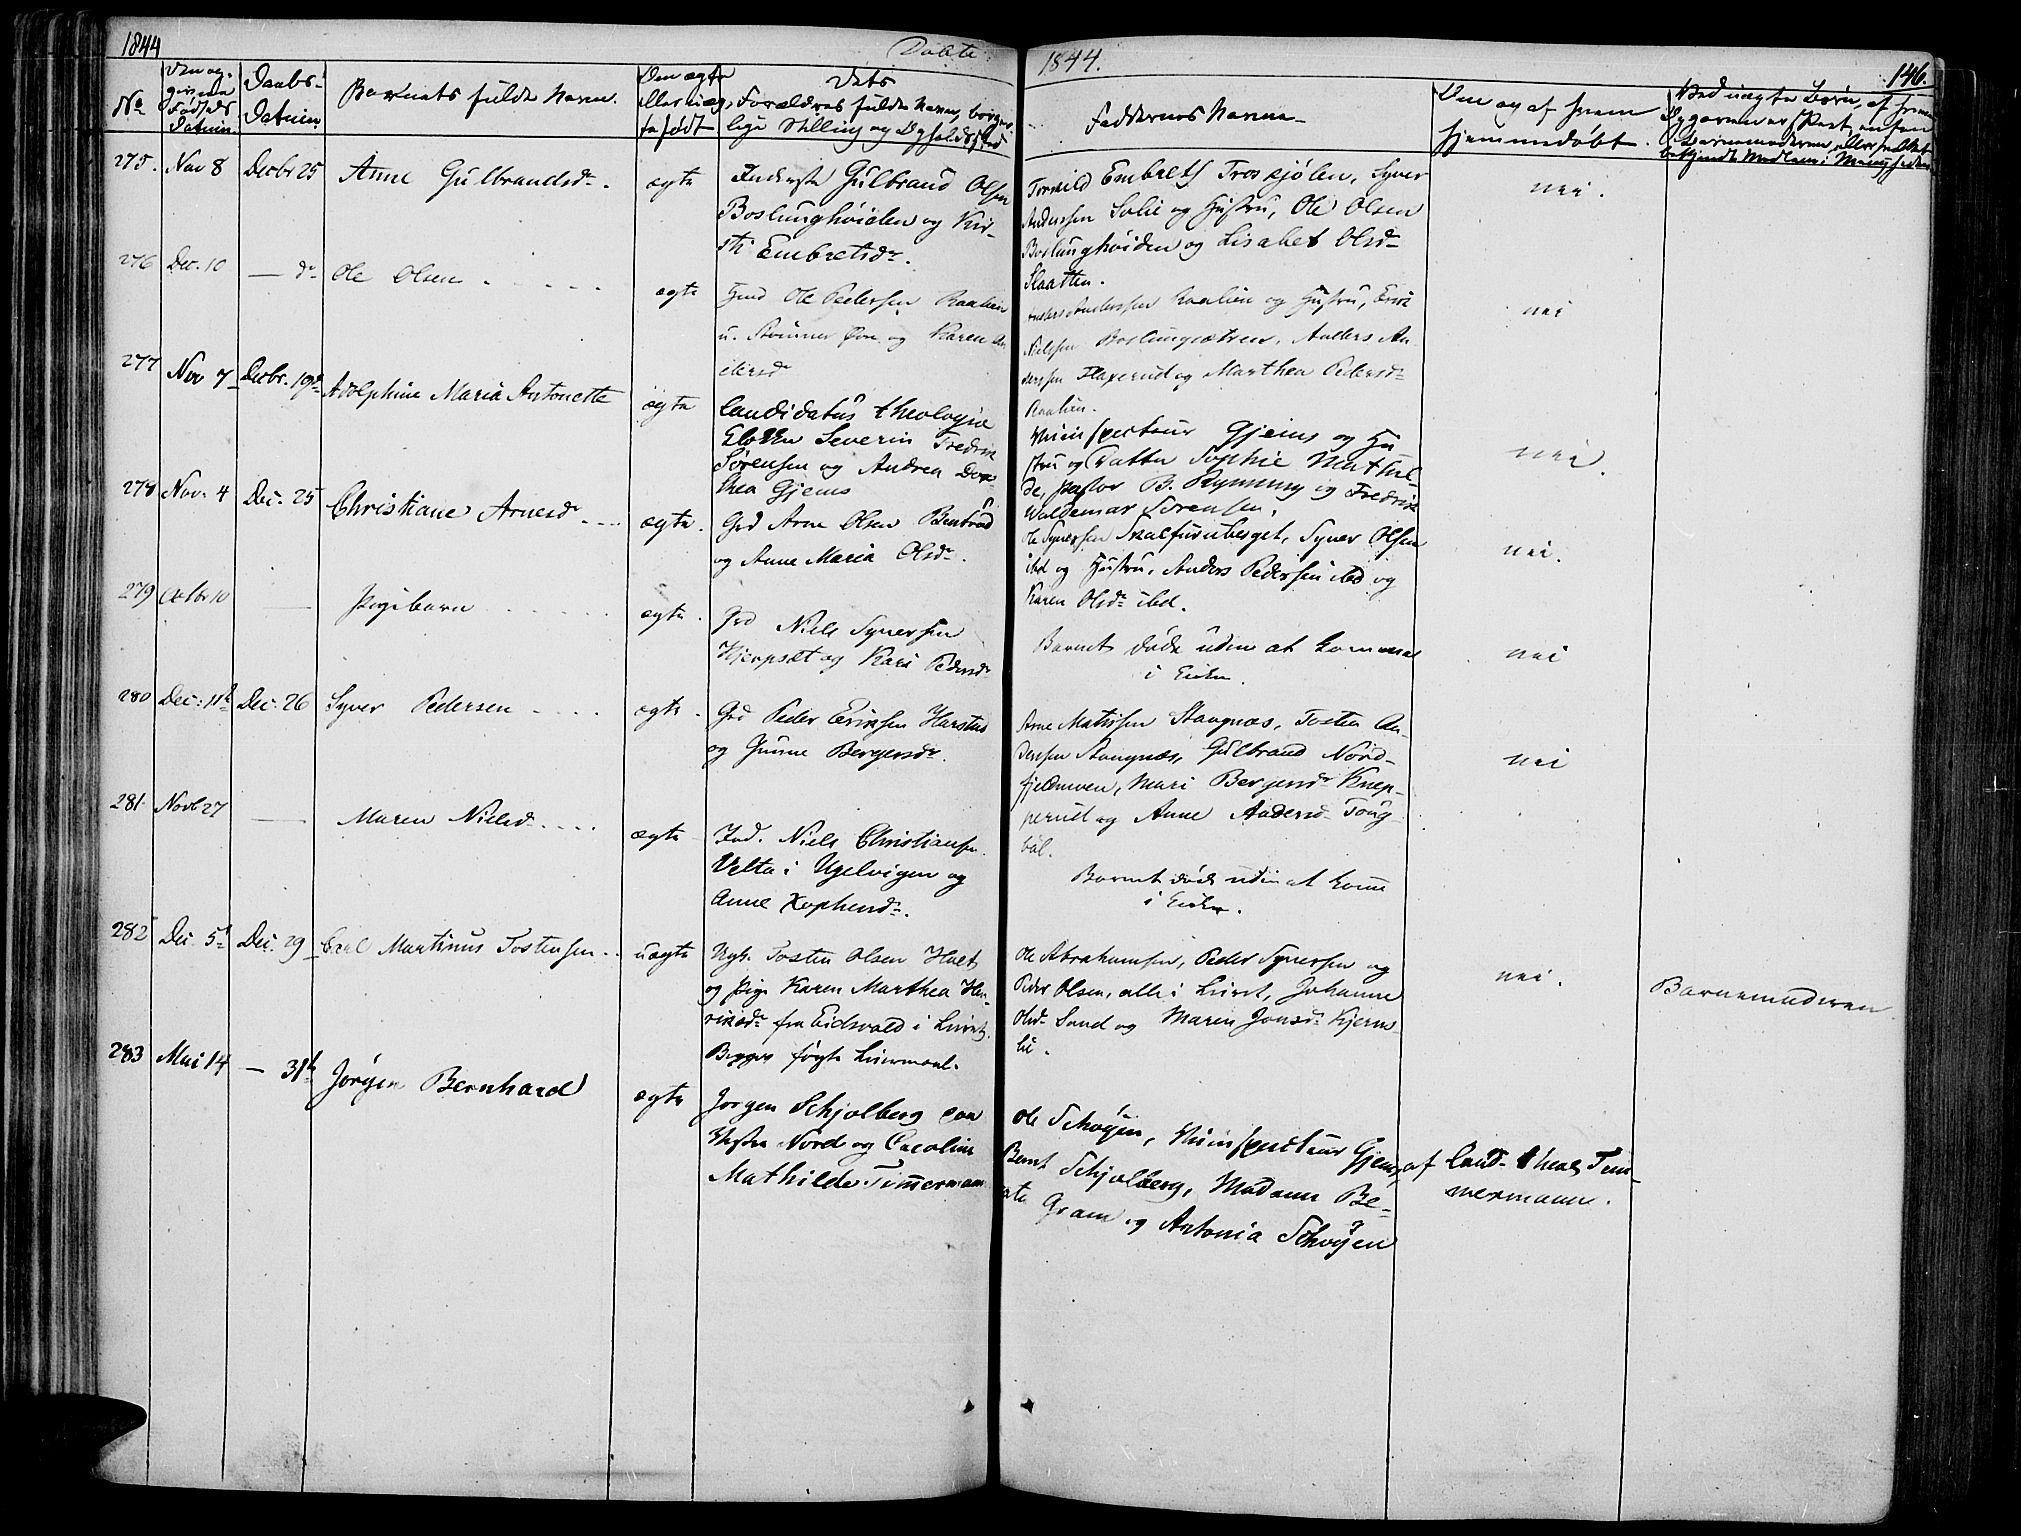 1844
Døbte
1844.
146.
No
Den angivne Fødsels Datum
Daabs-Datum
Barnets fulde Navn.
Om ægte eller uægte født
Dets Forældres fulde Navne, borgerlige Stilling og Opholdssted
Faddernes Navne
Om og af hvem hjemmedøbt.
Ved uægte Børn, af hvem
275. Nov 8 Decbr 25 Anne Gulbrandsdr. ægte
Inderste Gulbrand Olsen
Boslunghøiden og Kir-
sti Embretsdr.
Embrets Froskjølen, Syver
Anderssen Solie og Hustru, Ole Olsen
Boslunghøiden og Lisabet Olsdr
Slaatten.
nei.
276 Dec. 10 — dr Ole Olsen ægte
Hmd Ole Pedersen Raalien
u. og Karen An
dersdr
Anders Anderssen Raalien og Hustru, Erik
Nielsen Boslungsætren, Anders An
derssen Flaxerud og Marthea Pedersdr
Raalien.
nei
277 Nov 7 Decbr. 19de Adolphine Maria Antonette ægte
Candidatus theologiæ
Severin Fredrik
Sørensen og Andrea Doro
thea Gjems
Gjems og Hu
stru og Datter Sophie Mathil-
de, Pastor B. og Fredrik
Waldemar Sørensen.
nei.
278 Nov. 4 Dec. 25 Christiane Arnesdr ægte.
Grd Arne Olsen Benterud
og Anne Maria Olsdr.
Ole Syversen Skalfuruberget, Syver Olsen
ibd og Hustru, Anders Pedersen ibd og
Karen Olsdr ibd.
nei.
279 Octbr 10 — Pigebarn ægte.
Grd Niels Syversen
og Kari Pedersdr
Barnet døde uden at komme
i Kirke.
nei
280 Dec. 11te Dec. 26 Syver Pedersen ægte.
Grd Peder Eriksen Harstad
og Gunne Bergersdr.
Arne Matissen Stangnæs, Tosten An-
derssen Stangnæs, Gulbrand Nord-
Mari Bergersdr Knep-
perud og Anne Andersdr Tong-
bøl.
nei
281. Novb 27 — Maren Nielsdr ægte
Ind. Niels Christiansen
Velta i Ugelvigen og
Anne
Barnet døde uden at komme
i Kirke.
282 Dec. 5te Dec. 29 Carl Martinus Tostensen uægte
Ugk. Tosten Olsen Holt
og Pige Karen Marthea Hen-
riksdr fra Eidsvold i Liiret.
Begges første Leiermaal.
Ole Abrahamsen, Peder Syversen og
Peder Olsen, alle i Liiret, Johanne
Olsdr Sand og Maren Jonsdr Kjerns-
lie.
nei.
Barnemoderen
283 Mai 14 — 31te Jørgen Bernhard ægte
Jørgen Schjølberg paa
Nord og Caroline
Mathilde Timmermann
Ole Schøyen, Gjems,
Bernt Schjølberg, Madame Be-
ate Gram og Antonia Schøyen
af Cand. theol Tim-
mermann.